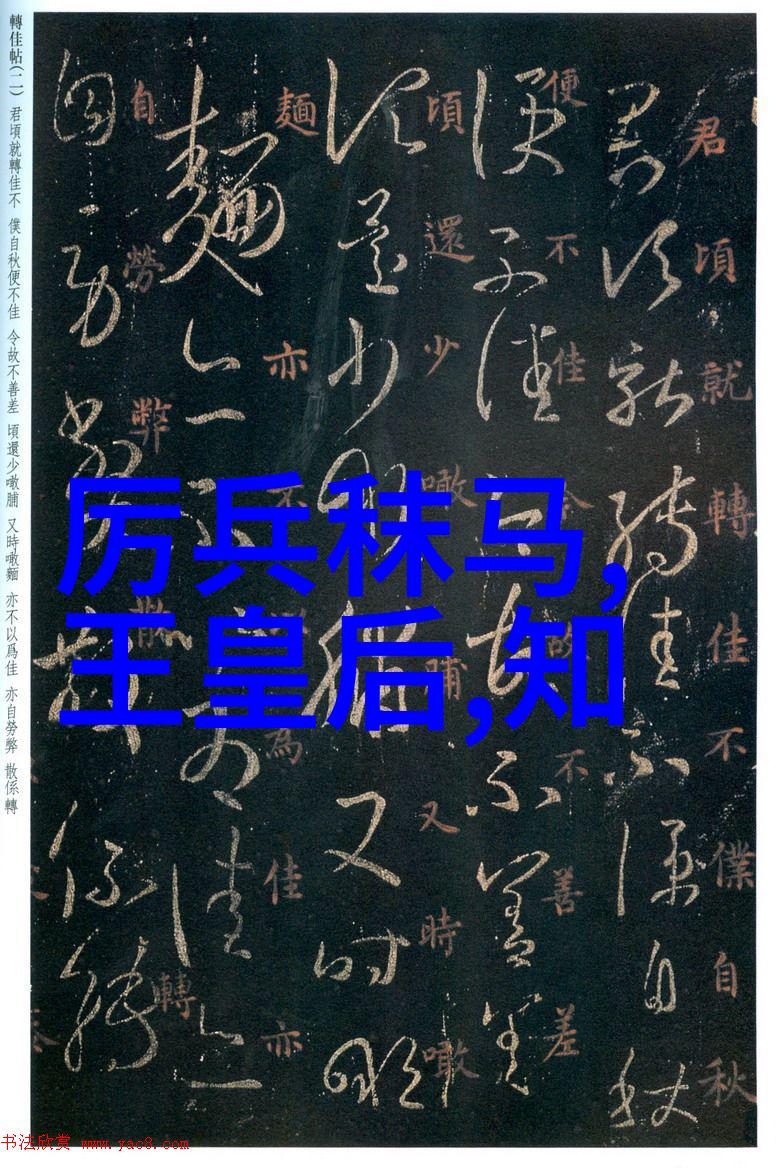 轉佳帖(二) 君頃就轉佳不 僕自秋便不佳 令故不善差 頃還少噉脯 又時噉麵 亦不以爲佳 亦自勞弊 散係轉
君頃就轉佳不僕自秋
便不佳令故不善差
頃還少噉脯又時噉
麵亦不以為佳亦
自勞弊散係轉
厉兵秣马,
王皇后,知
书法欣赏 www.yac8.com